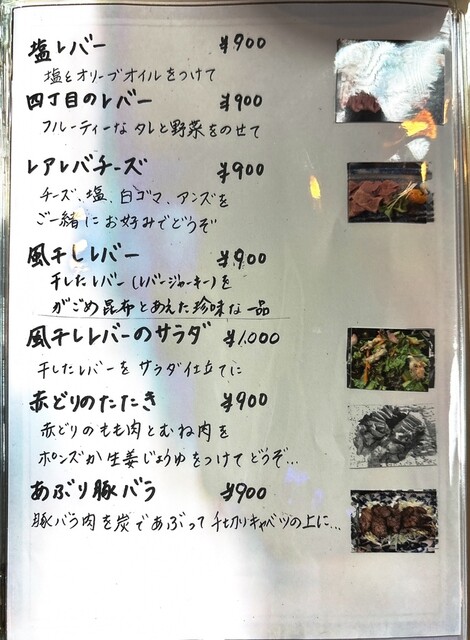 塩レバー ¥900
塩とオリーブオイルをつけて
四丁目のレバー ¥900
フルーティーなタレと野菜をのせて
レアレバチーズ ¥900
チーズ、塩、白ゴマ、アンズを
ご一緒にお好みでどうぞ
風干しレバー ¥900
干したレバー(レバージャーキー)を
がごめ昆布とあえた珍味な一品
風干しレバーのサラダ ¥1.000
干したレバーをサラダ仕立てに
赤どりのたたき ¥900
赤どりのもも肉とむね肉を
ポンズか生姜じょうゆをつけてどうぞ…
あぶり豚バラ ¥900
豚バラ肉を炭であぶって千切りキャベツの上に…